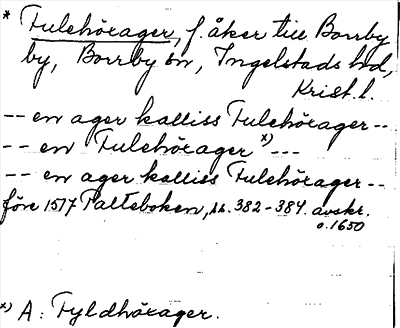 * Fulehörager, f. åker till Borrby
by, Borrby sn, Ingelstads hd,
Krist. l.
-- en ager kalliss Fulehörager --
-- en Fulehörager x) ---
-- en ager kalliss Fulehörager --
före 1517 Palteboken, s. 382-384. avskr.
o. 1650
x) A: Fyldhörager.